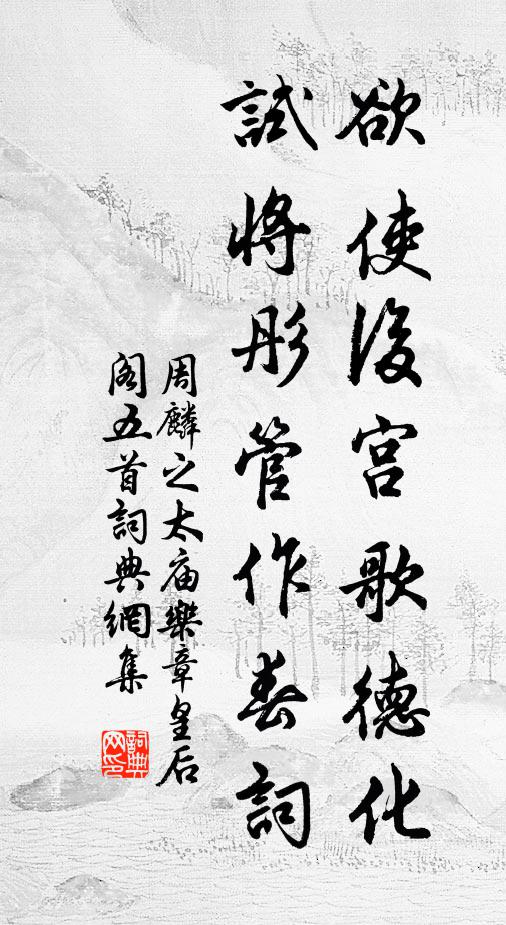 欲使後宮歌德化
試將彤管作春詞
周麟之太庙樂章皇后
阁五首詞典網集
詞典网印